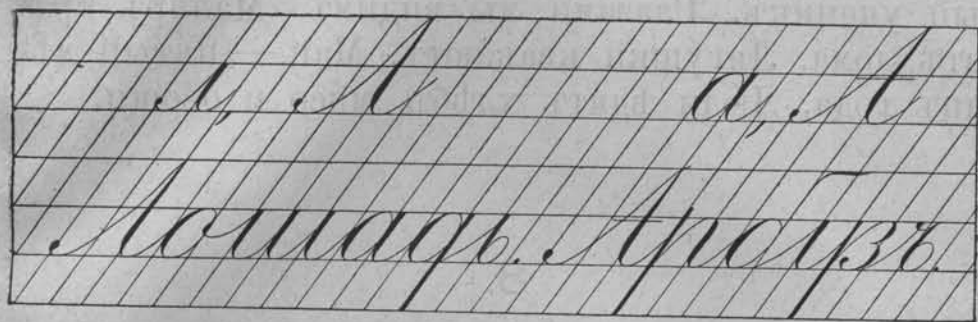 л, Л а, А
Лошадь. Арбузъ.